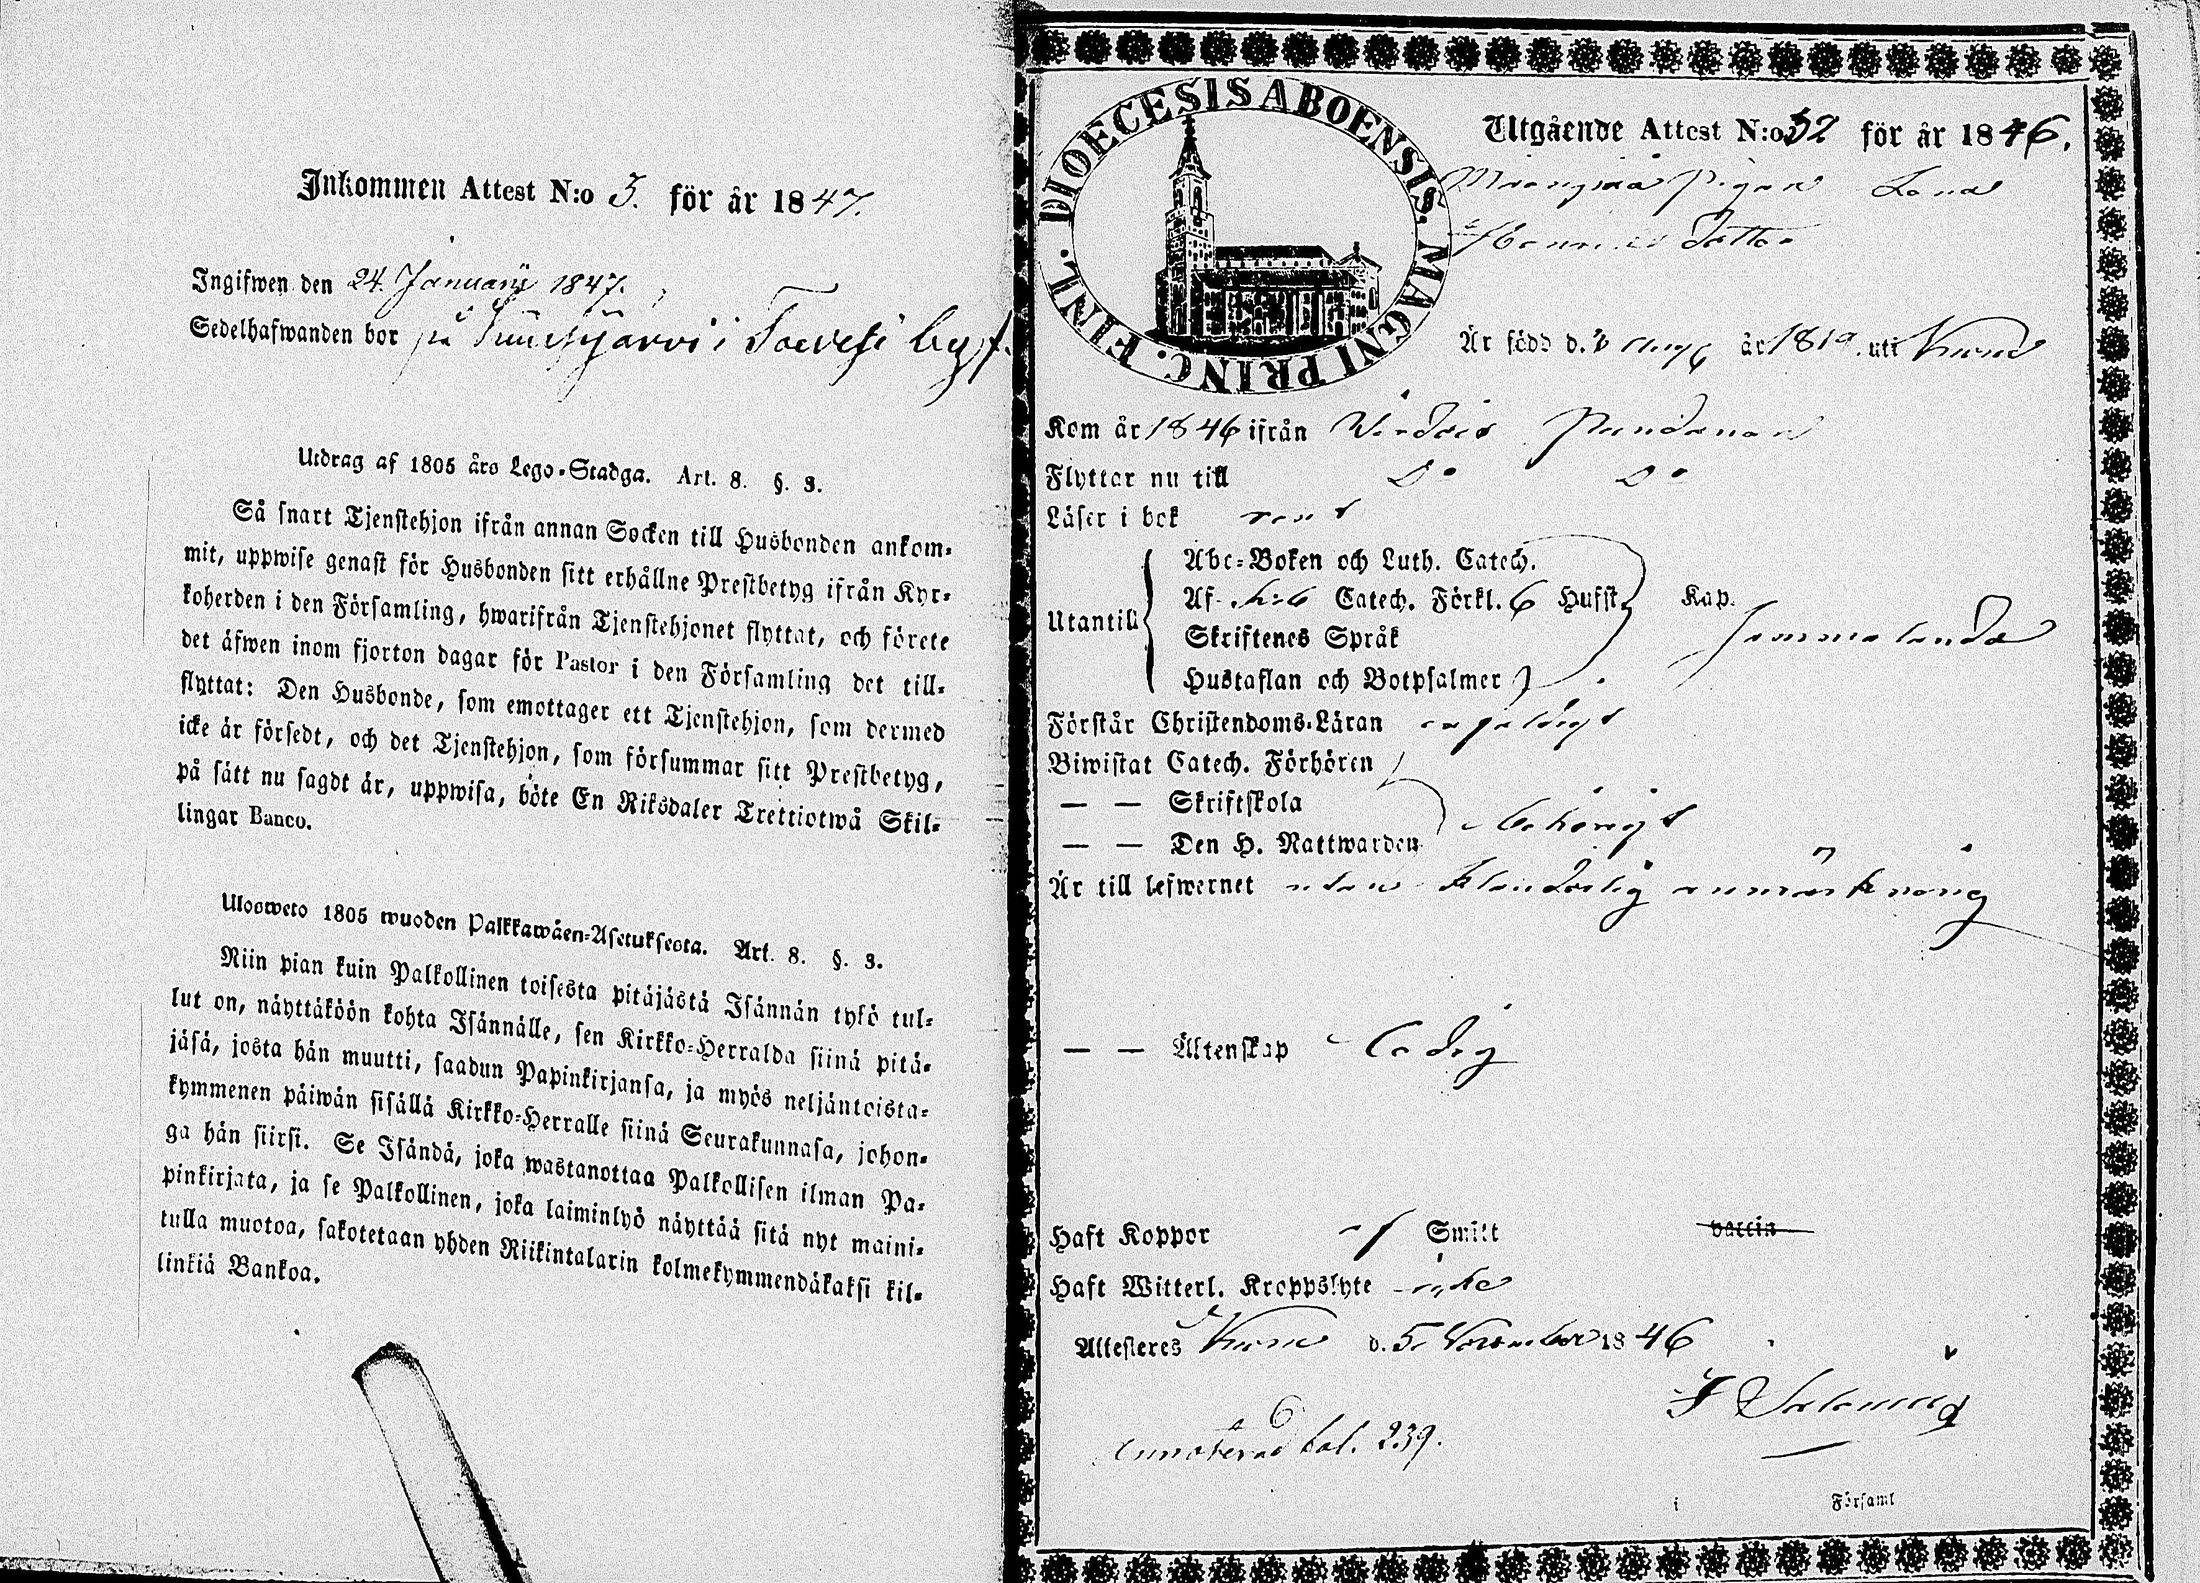 Inkommen Attest N:o 5. för år 1847.
Ingifwen den 24 Januarii 1847.
Sedelhafwanden bor på i Toivesi by
Utdrag af 1805 års Lego-Stadga. Art. 8. §. 3.
Så snart Tjenstehjon ifrån annan Socken till Husbonden ankom-
mit, uppwise genast för Husbonden sitt erhållne Prestbetyg ifrån Kyr-
koherden i den Församling, hwarifrån Tjenstehjonet flyttat, och förete
det äfwen inom fjorton dagar för Pastor i den Församling det till-
flyttat: Den Husbonde, som emottager ett Tjenstehjon, som dermed
icke är försedt, och det Tjenstehjon, som försummar sitt Prestbetyg,
på sätt nu sagdt är, uppwisa, böte En Riksdaler Trettiotwå Skil-
lingar Banco.
Ulosweto 1805 wuoden Palkkawäen-Asetuksesta. Art. 8. §. 3.
Niin pian kuin Palkollinen toisesta pitäjästä Isännän tykö tul-
lut on, näyttäköön kohta Isännälle, sen Kirkko-Herralda siinä pitä-
jäsä, josta hän muutti, saadun Papinkirjansa, ja myös neljäntoista-
kymmenen päiwän sisällä Kirkko-Herralle siinä Seurakunnasa, johon-
ga hän siirsi. Se Isändä, joka wastanottaa Palkollisen ilman Pa-
pinkirjata, ja se Palkollinen, joka laiminlyö näyttää sitä nyt maini-
tulla muotoa, sakotetaan yhden Riikintalarin kolmekymmendäkaksi kil-
linkiä Bankoa.
DIOECESIS ABOENSIS. MAGNI PRINC. FINL.
Utgående Attest N:o 52 för år 1846.
Pigan Lena
dotter
Är född d. Aug år 1819. uti
Kom år 1846 ifrån Wirdois
Flyttar nu till Do Do
Läser i bok rent
Utantill
Abc-Boken och Luth. Catech.
Af Catech. Förkl. 6 Hufst. Kap.
Skriftenes Språk
Hustaflan och Botpsalmer
Förstår Christendoms-Läran
Biwistat Catech. Förhören
— — Skriftskola
— — Den H. Nattwarden behörigt
Är till lefwernet utan klanderlig anmärkning
— — Äktenskap Ledig
Haft Koppor af Smitt vaccin
Haft Witterl. Kroppslyte icke
Attesteres d. 5 November 1846
Annoterad fol. 239.
i Församl